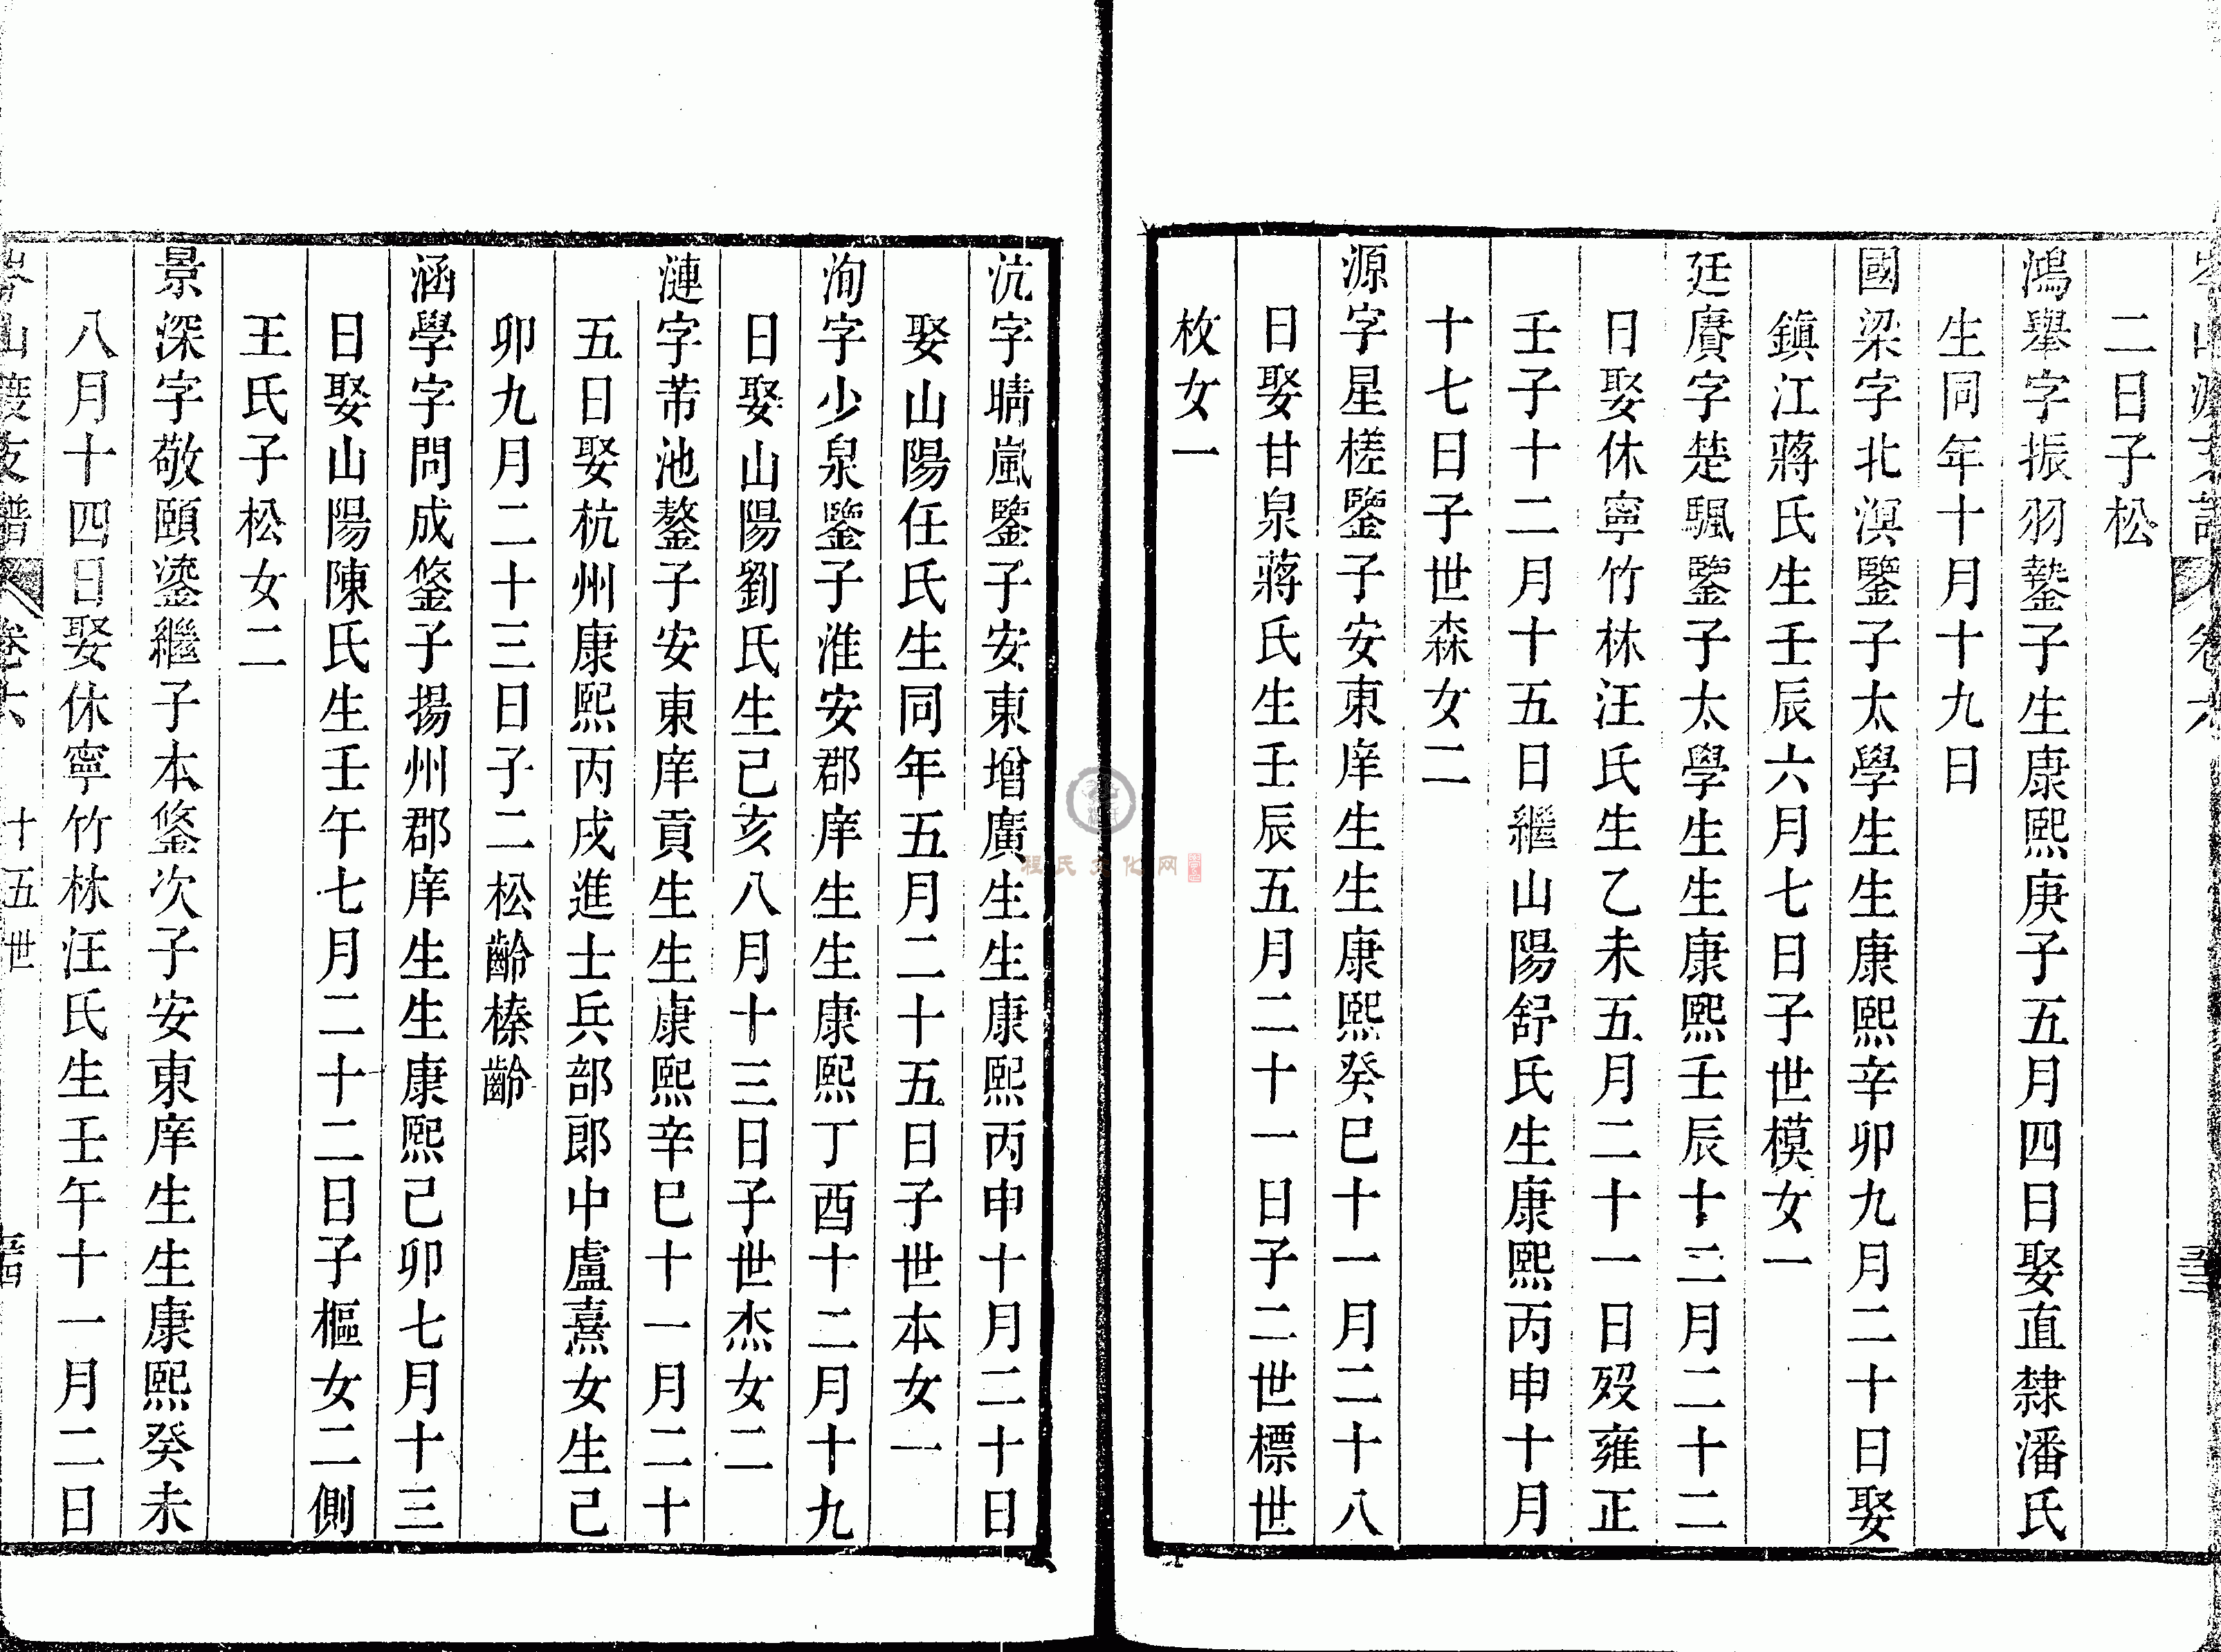 二日子松
鴻舉字振羽鏊子生康熙庚子五月四日娶直隸潘氏
生同年十月十九日
國梁字北溟鑒子太學生生康熙辛卯九月二十日娶
鎮江蔣氏生壬辰六月七日子世模女一
廷賡字楚颿鑒子太學生生康熙壬辰十二月二十二
日娶休寧竹林汪氏生乙未五月二十一日歿雍正
壬子十二月十五日繼山陽舒氏生康熙丙申十月
十七日子世森女二
源字星槎鑒子安東庠生生康熙癸巳十一月二十八
日娶甘泉蔣氏生壬辰五月二十一日子二世標世
枚女一
沆字晴嵐鑒子安東增廣生生康熙丙申十月二十日
娶山陽任氏生同年五月二十五日子世本女一
洵字少泉鑒子淮安郡庠生生康熙丁酉十二月十九
日娶山陽劉氏生己亥八月十三日子世杰女二
漣字芾池鏊子安東庠貢生生康熙辛巳十一月二十
五日娶杭州康熙丙戌進士兵部郎中盧熹女生己
卯九月二十三日子二松齡榛齡
涵學字問成鋚子揚州郡庠生生康熙己卯七月十三
日娶山陽陳氏生壬午七月二十二日子樞女二側
王氏子松女二
景深字敬頤鎏繼子本鋚次子安東庠生生康熙癸未
八月十四日娶休寧竹林汪氏生壬午十一月二日
岑山渡支譜 卷六 十五世
程氏文化网